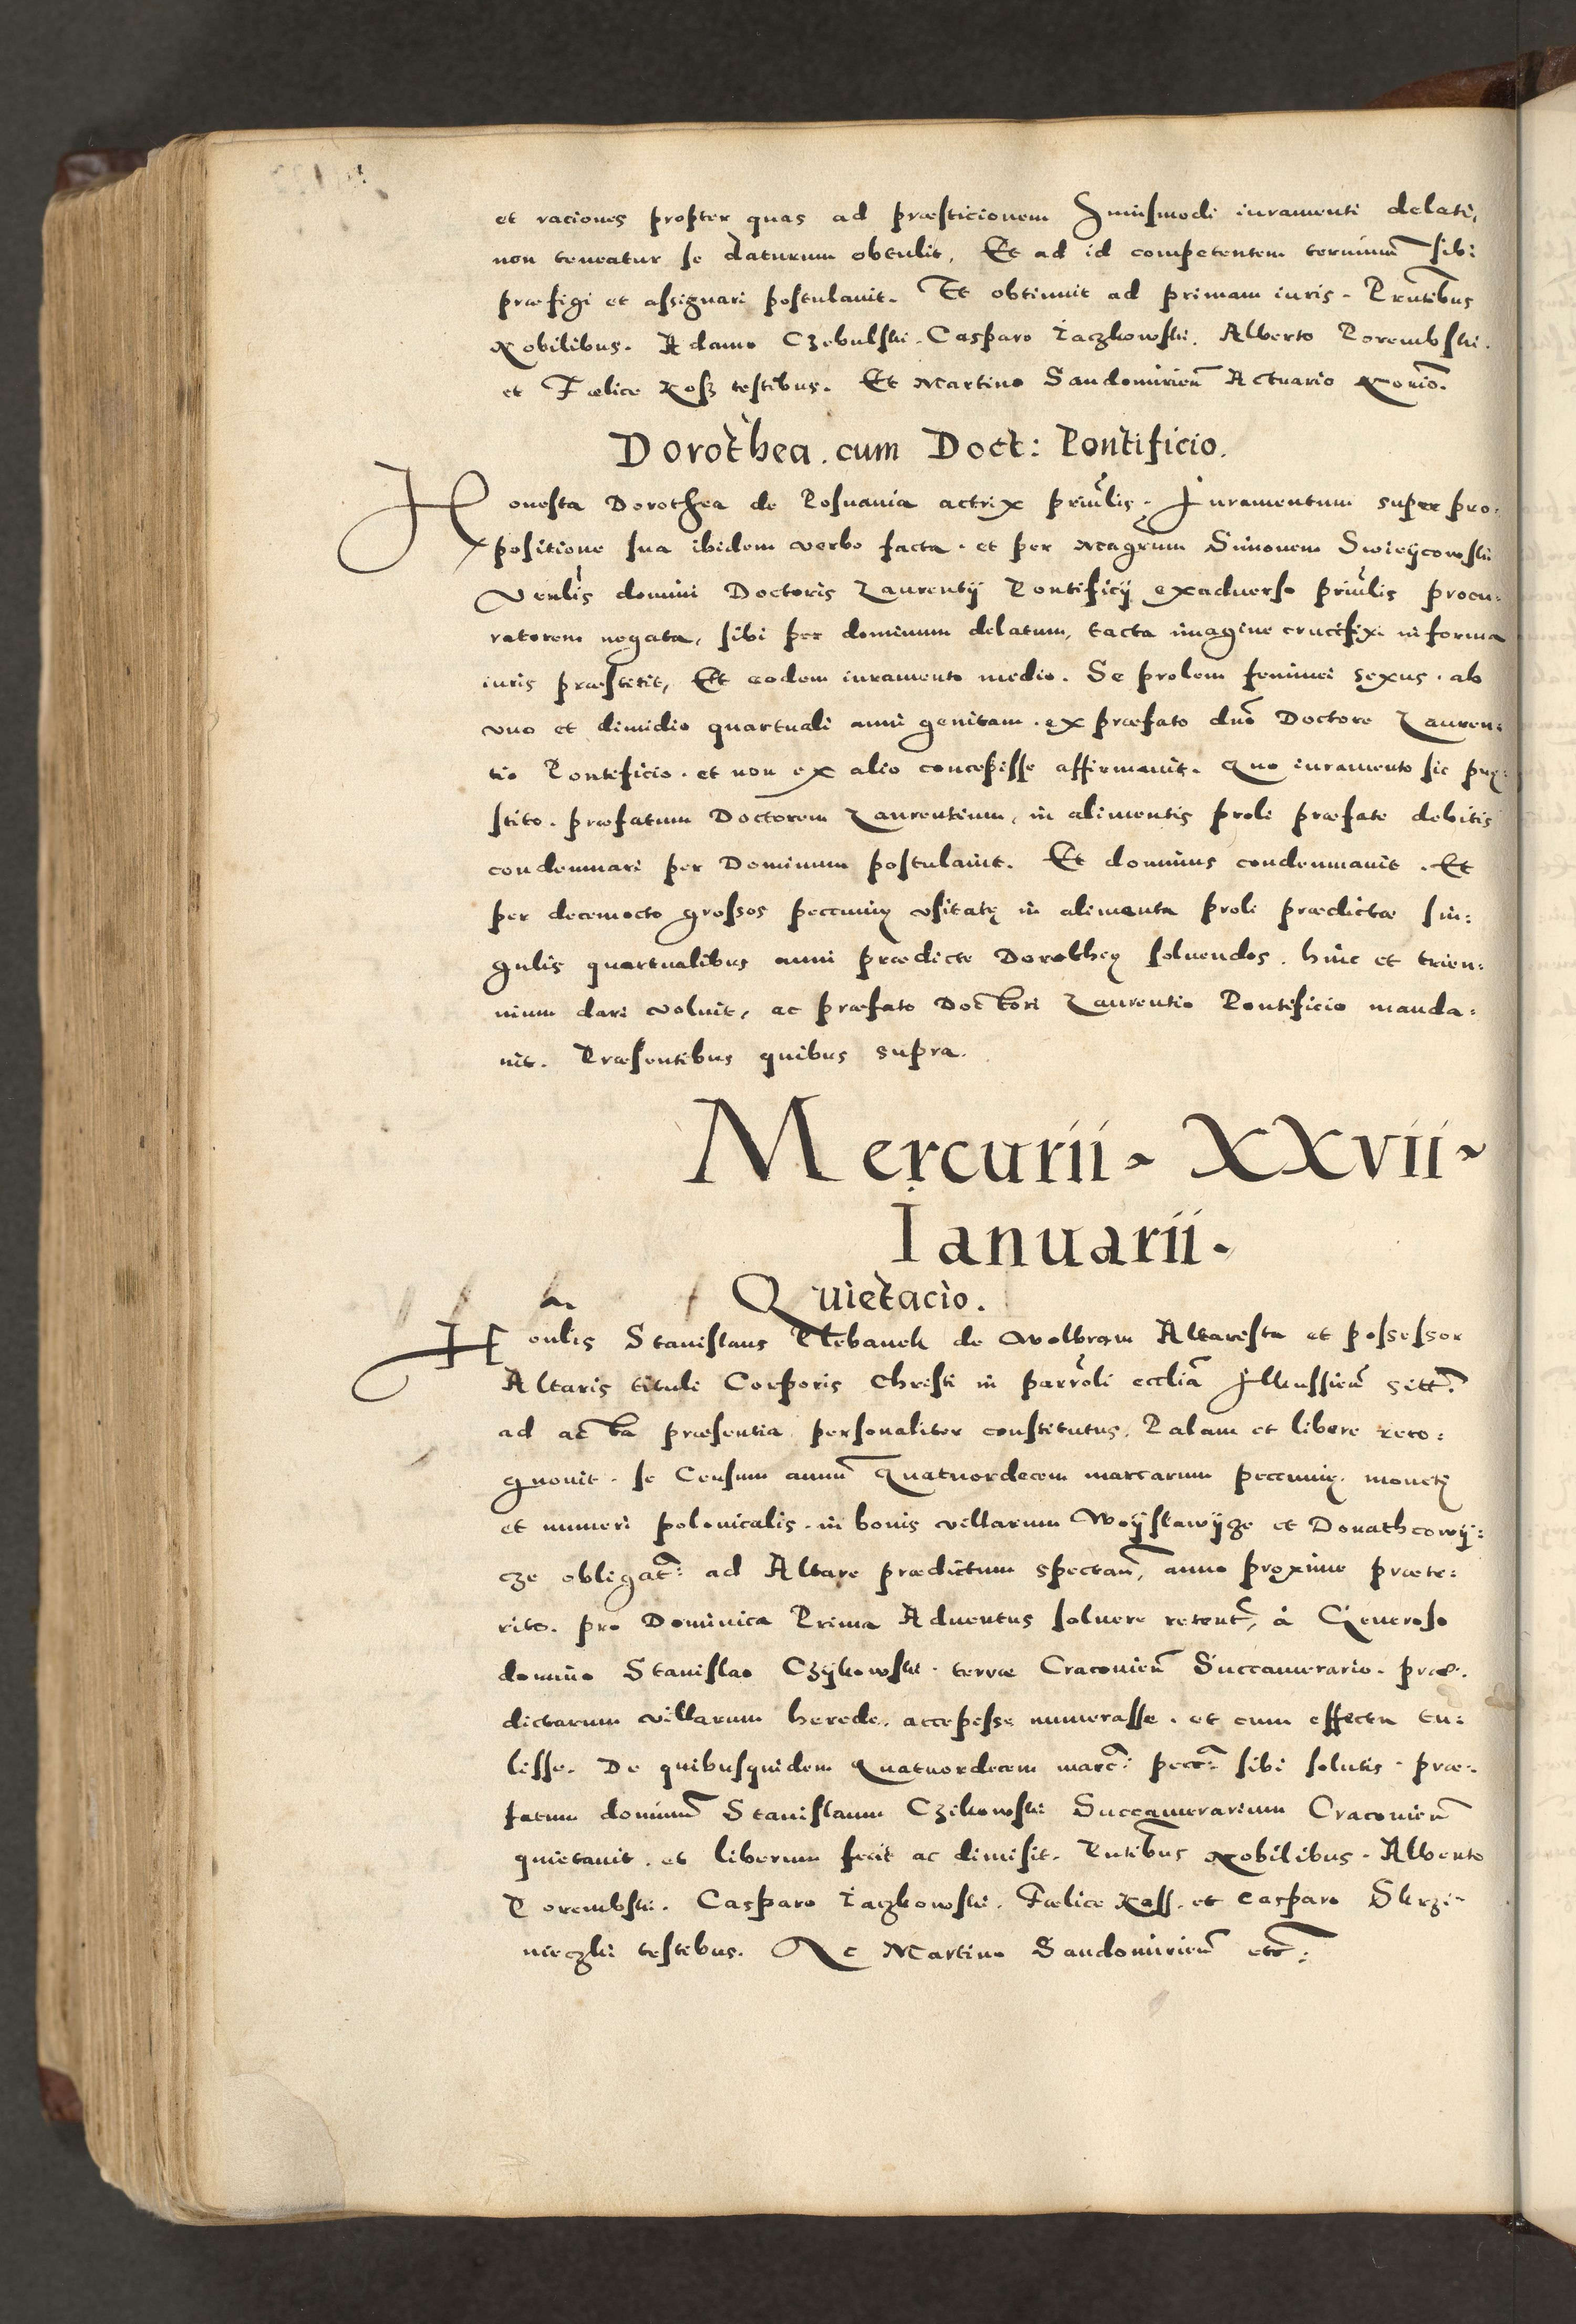 et raciones propter quas ad præsticionem Huiusmodi iuramenti delati,
non teneatur se daturum obtulit, Et ad id competentem terminũ sibi
præfigi et assignari postulauit. Et obtinuit ad primam iuris. Prñtibus
Nobilibus. Adamo Czebulski. Casparo Iaczkowski. Alberto Porembski.
et Fælice Kosz testibus. Et Martino Sandomirieñ Actuario Notorio.
Dorothea. cum Doct: Pontificio.
Honesta Dorothea de Posnania actrix prinĩlis. Iuramentum super pro-
positione sua ibidem verbo facta. et per Magrum Simonem Swieijcowski
Venlis domini Doctoris Laurentij Pontificij exaduerso prinĩlis procu-
ratorem negata, sibi per dominum delatum, tacta imagine crucifixi in forma
iuris præstitit, Et eodem iuramento medio. Se prolem feminei sexus. ab
vno et dimidio quartuali anni genitam. ex præfato dño Doctore Lauren-
tio Pontificio. et non ex alio concepisse affirmauit. Quo iuramento sic præ-
stito. præfatum Doctorem Laurentium, in alimentis proli præfate debitis
condemnari per Dominum postulauit. Et dominus condemnauit. Et
per decemocto grossos peccunię vsitatę in alimenta proli prædictæ sin:
gulis quartualibus anni prædicte Dorotheę soluendos. hinc et trien:
nium dari voluit, ac præfato Doctori Laurentio Pontificio manda:
uit. Præsentibus quibus supra.
Mercurii. XXvii.
Ianuarii.
Quietacio.
Honlis Stanislaus Plebanek de Wolbram Altarista et possessor
Altaris tituli Corporis Christi in parrõli ecclĩa Ilkussieñ sitt:
ad acta præsentia personaliter constitutus. Palam et libere reco:
gnouit. se Censum annũ Quatuordecem marcarum peccunię. monetę
et numeri polonicalis. in bonis villarum Woijslawijcze et Donathcowij:
cze obligat: ad Altare prædictum spectañ, anno proxime præte:
rito. pro Dominica Prima Aduentus soluere retent, à Generoso
domino Stanislao Czijkowski. terræ Cracouieñ Succamerario. præ-
dictarum villarum herede. accepisse numerasse. et cum effectu tu:
lisse. De quibusquidem Quatuordecem marc: pecc: sibi solutis. præ-
fatum dominũ Stanislaum Czikowski Succamerarium Cracouieñ
quietauit. et liberum fecit ac dimisit. Prñtibus Nobilibus. Alberto
Porembski. Casparo Iaczkowski. Fælice Koss. et Casparo Skrzi-
nieczki testibus. Ac Martino Sandomirieñ etc: